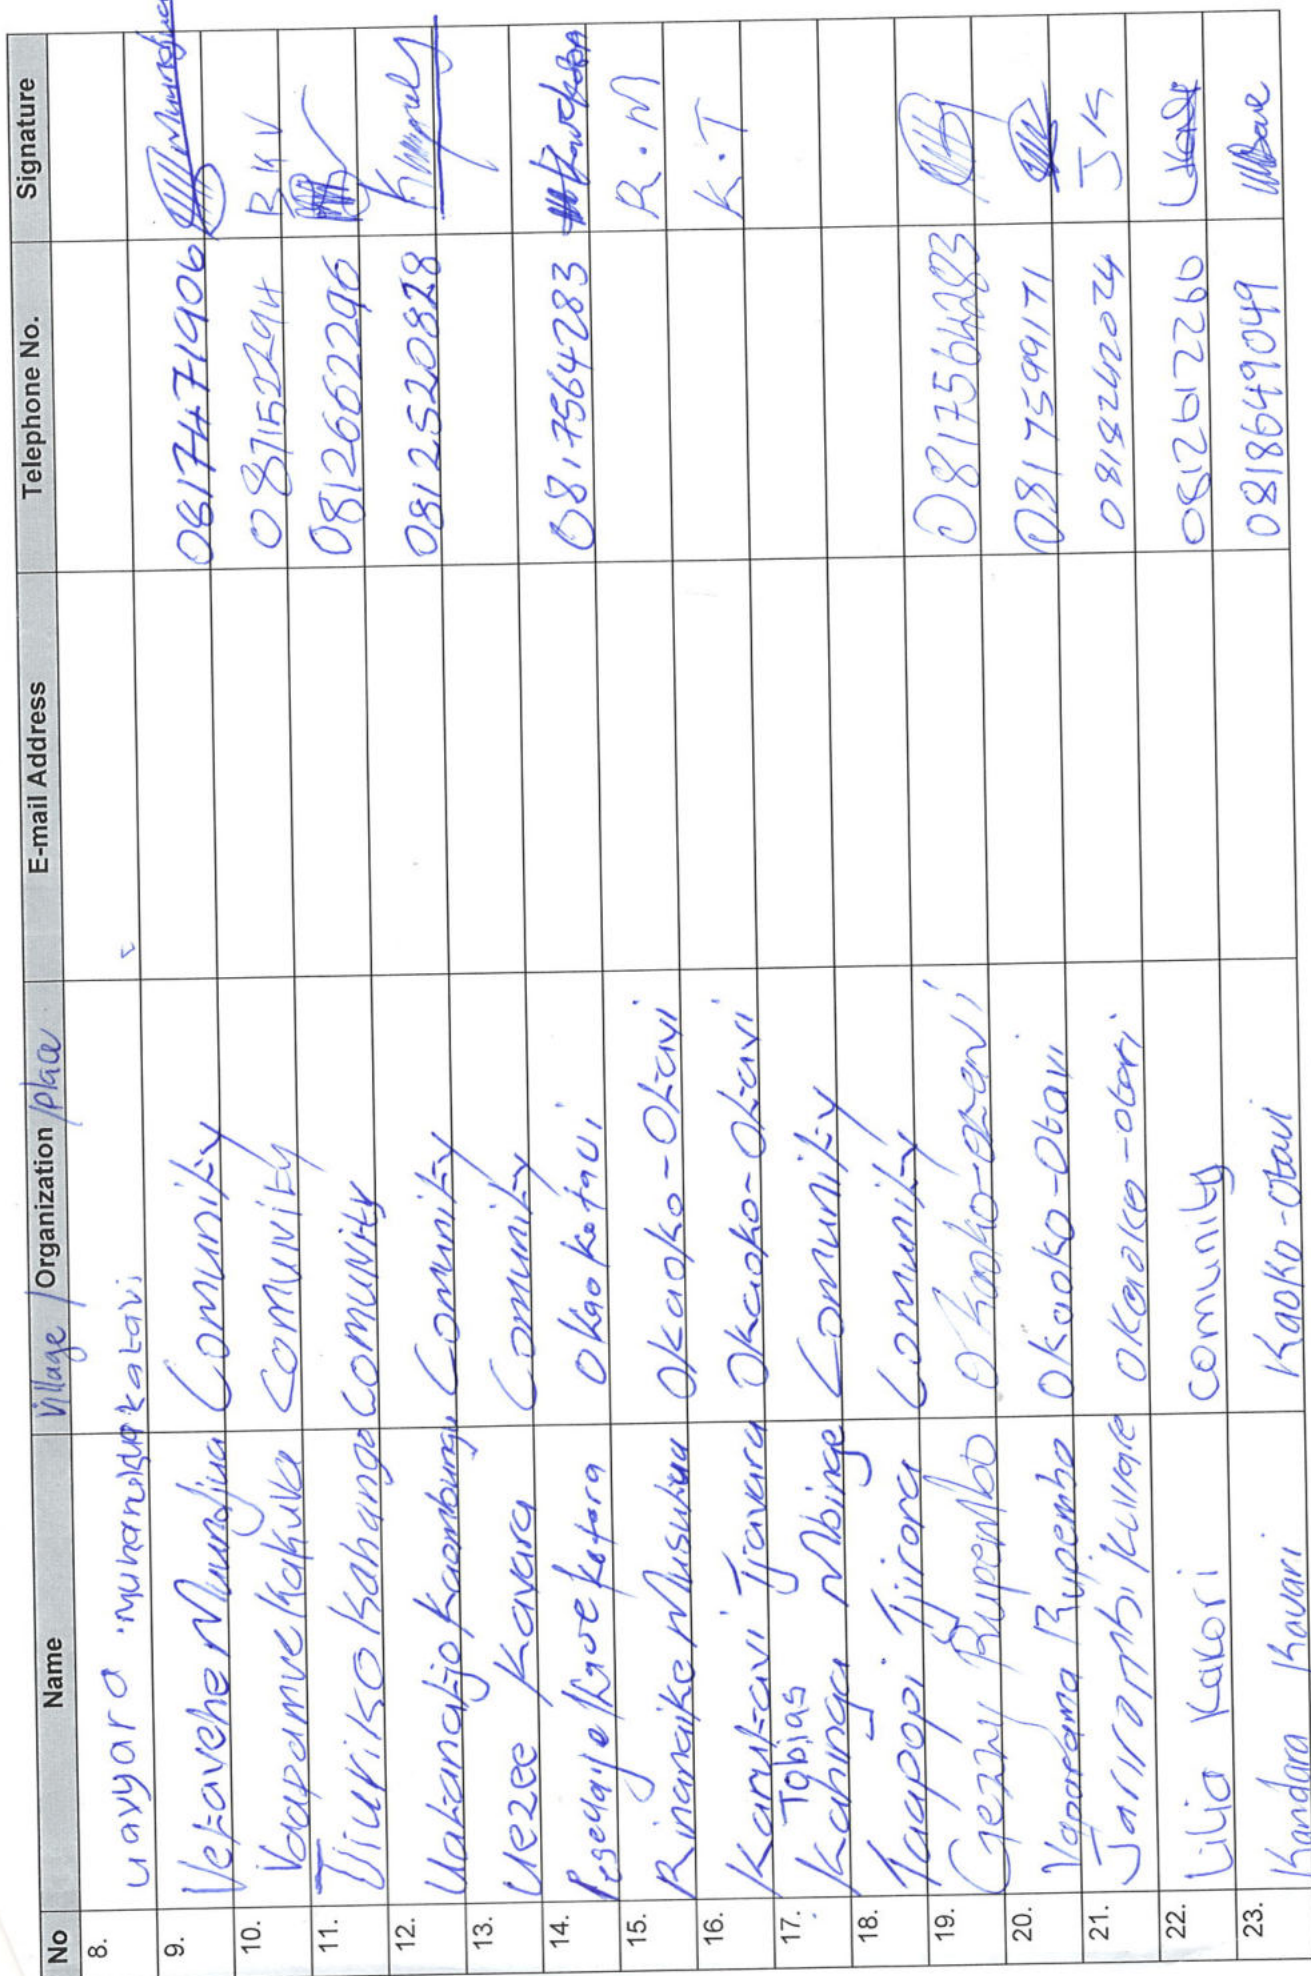 No Name Village / Organization / place E-mail Address Telephone No. Signature
8. uavyara muhanikua okatavi
9. Vetavehe Mundjua Comunity 0817471906
10. Vaapamve Kakuva comunity 08715229H B K V
11. Tjiuriko Kahanga comunity 0812662296
12. Uatanaijo Kaamburgu Comunity 0812520828
13. Uezee Kavara Comunity
14. Okaokotavi 0817564283
15. Rinanaike Musutua Okaoko-Otavi R.M
16. Karutavi Tjavara Okaoko-Otavi K.T
17. Tobias Kahinga Mbinge Comunity
18. Taapopi Tjirora Comunity
19. Gezzy Rupembo Okaoko-otavi 0817564283
20. Vaparama Rupembo Okaoko-Otavi 0817599171
21. Jarirambi Kuvare Okaoko-otavi 0818242024 J K
22. Lilia Kakori Comunity 0812612260
23. Kandara Kavari Kaoko-Otavi 0818649049